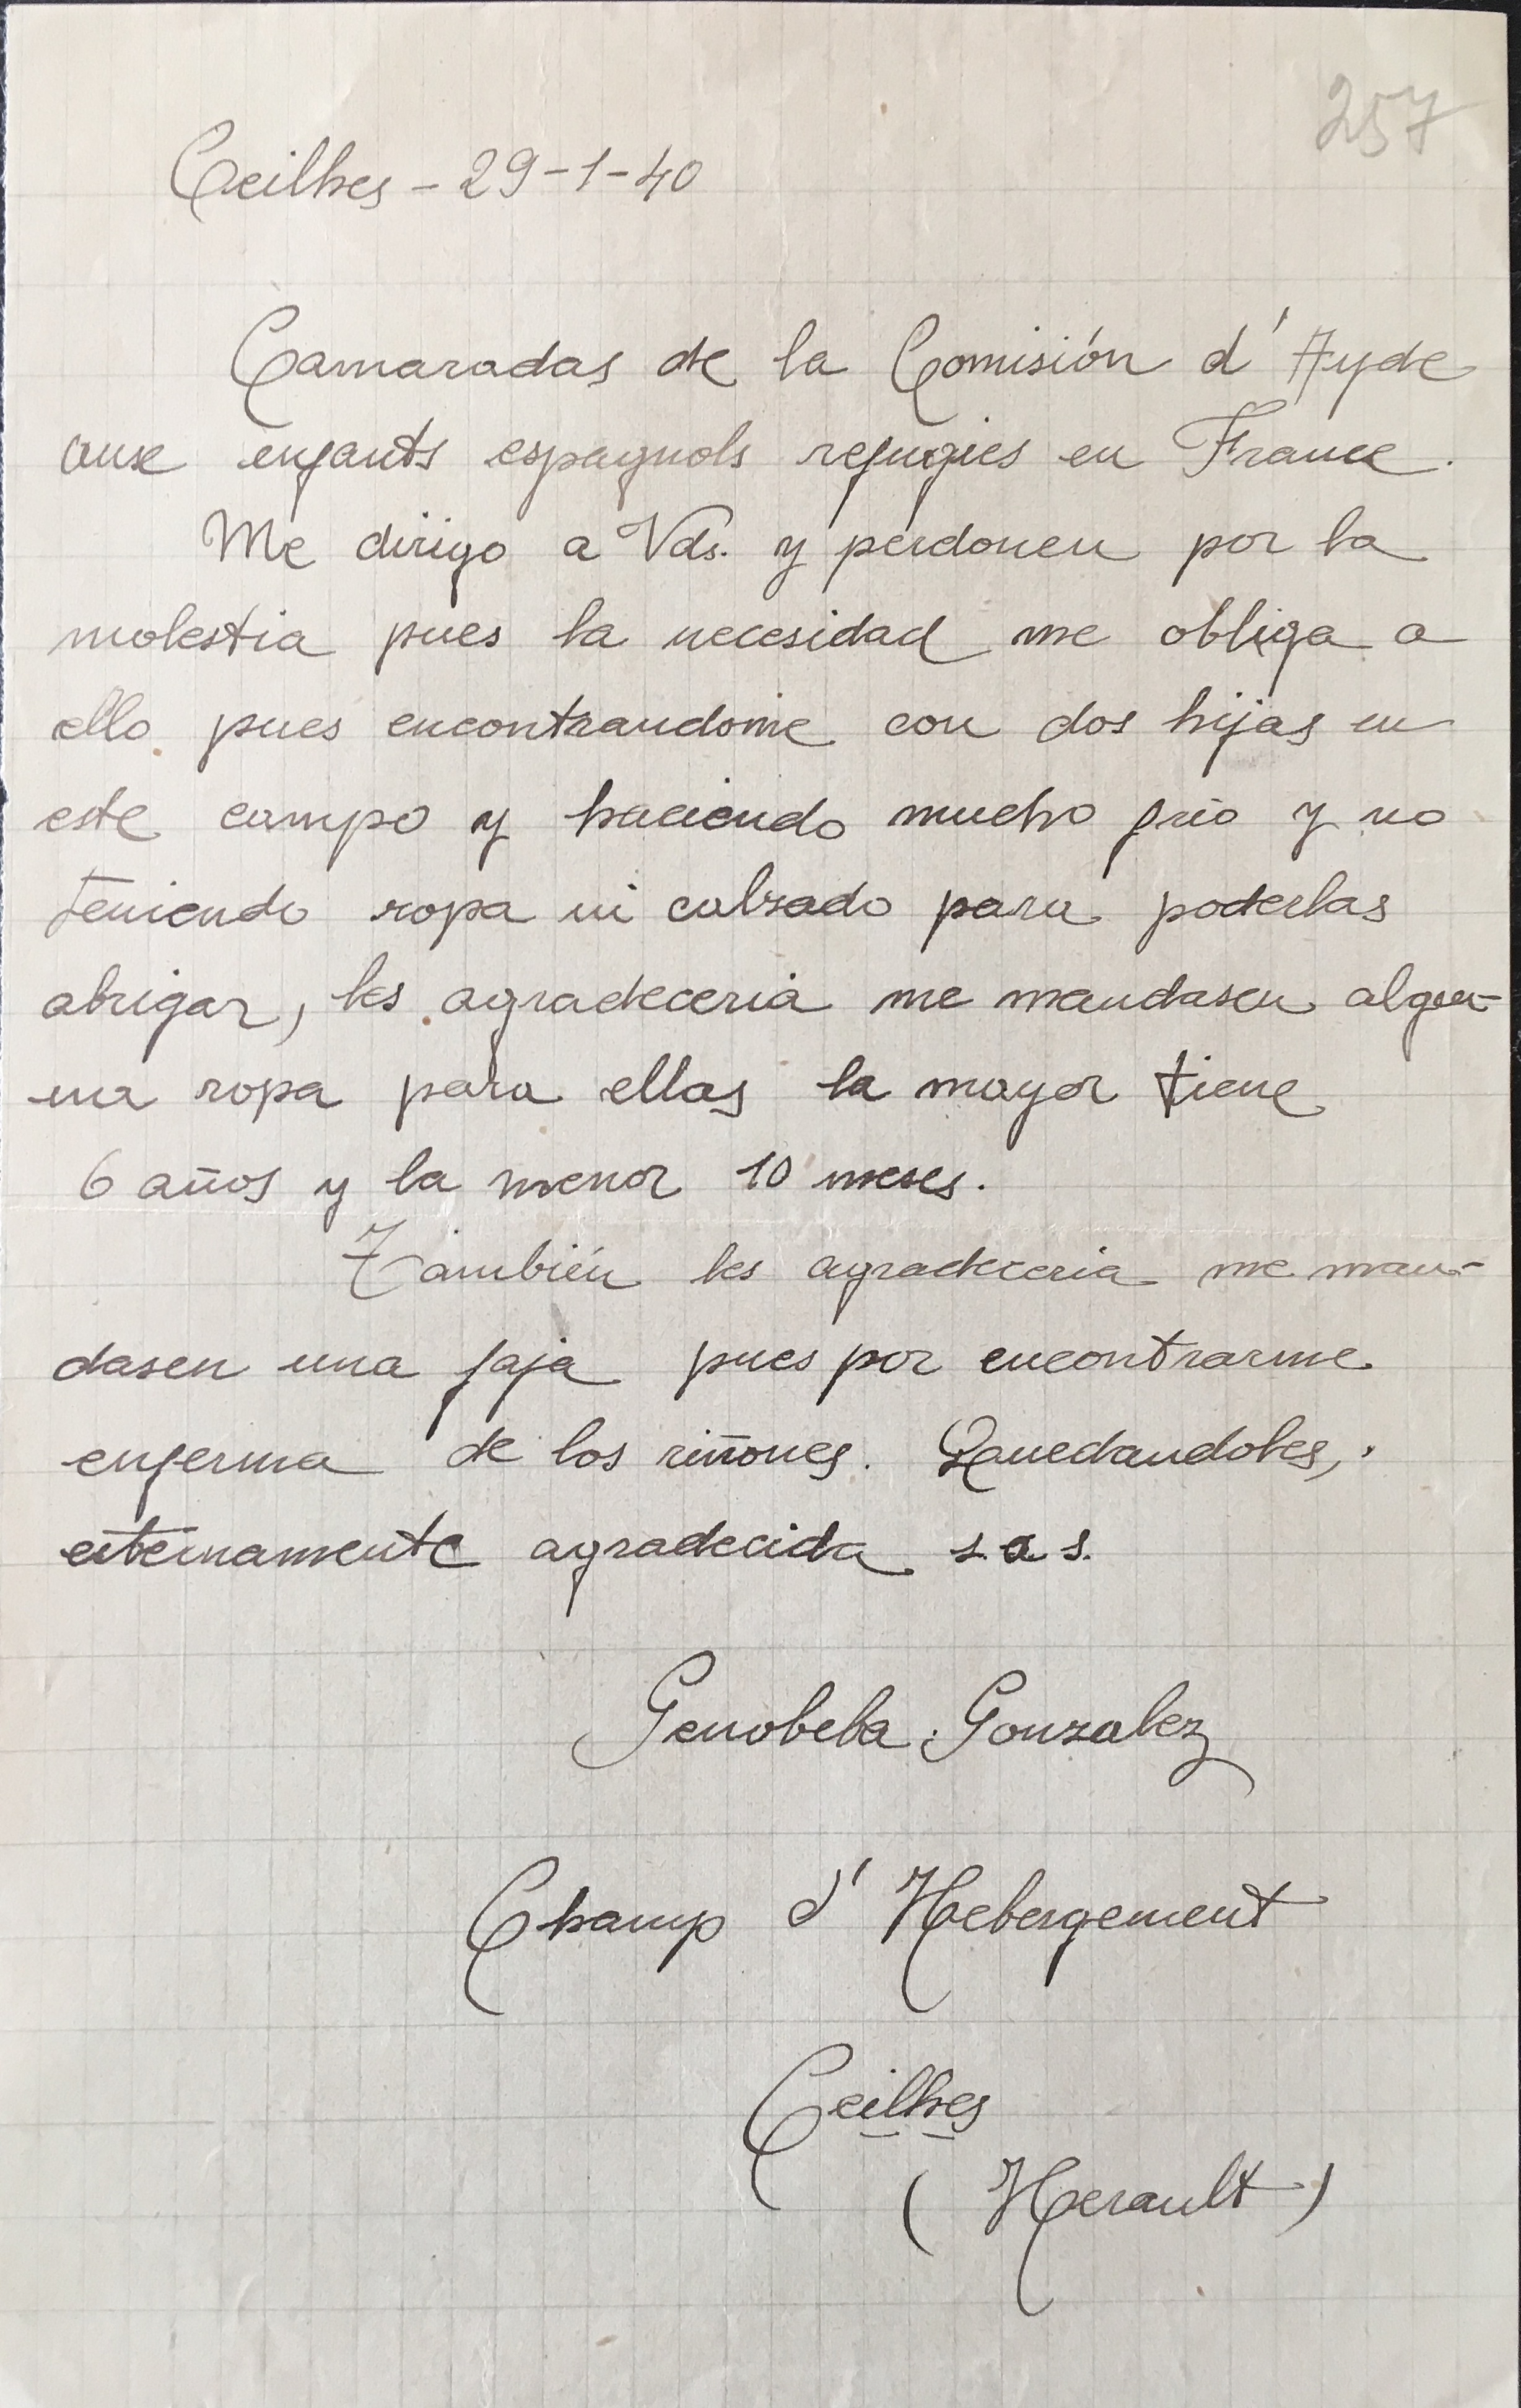 257
Ceilhes - 29-1-40
Camaradas de la Comisión d'Ayde
aux enfants espagnols refugies en France.
Me dirigo a Vds. y perdonen por la
molestia pues la necesidad me obliga a
ello pues encontrandome con dos hijas en
este campo y haciendo mucho frio y no
teniendo ropa ni calzado para poderlas
abrigar, les agradeceria me mandasen algu-
na ropa para ellas la mayor tiene
6 años y la menor 10 meses.
También les agradeceria me man-
dasen una faja pues por encontrarme
enferma de los riñones. Quedandoles,
eternamente agradecida s.a.s.
Genobeba Gonzalez
Champ d'Hebergement
Ceilhes
(Herault)